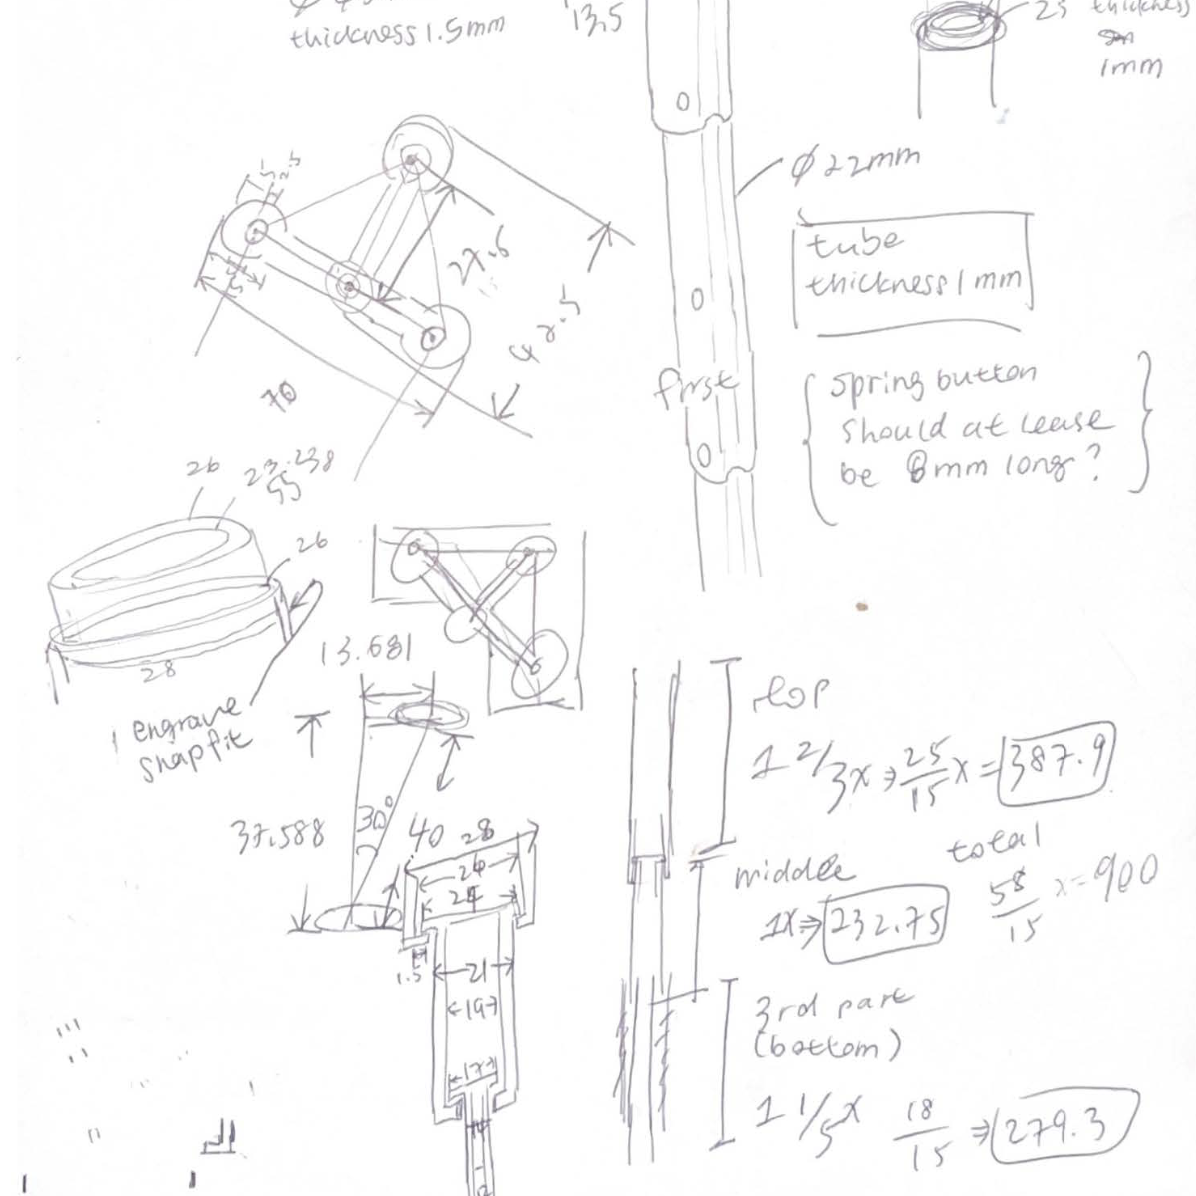 thickness 1.5mm
13.5
25
thickness
1mm
ϕ22mm
tube
thickness 1mm
27.6
42.5
70
first
spring button
should at lease
be 8mm long?
26
26
28
engrave
snapfit
13.681
37.588
30°
40
28
26
24
1.5
21
19
17
top
1 2/3x ⇒ 25/15 x = 387.9
middle
1x ⇒ 232.75
total
58/15 x = 900
3rd part
(bottom)
1 1/5x 18/15 ⇒ 279.3